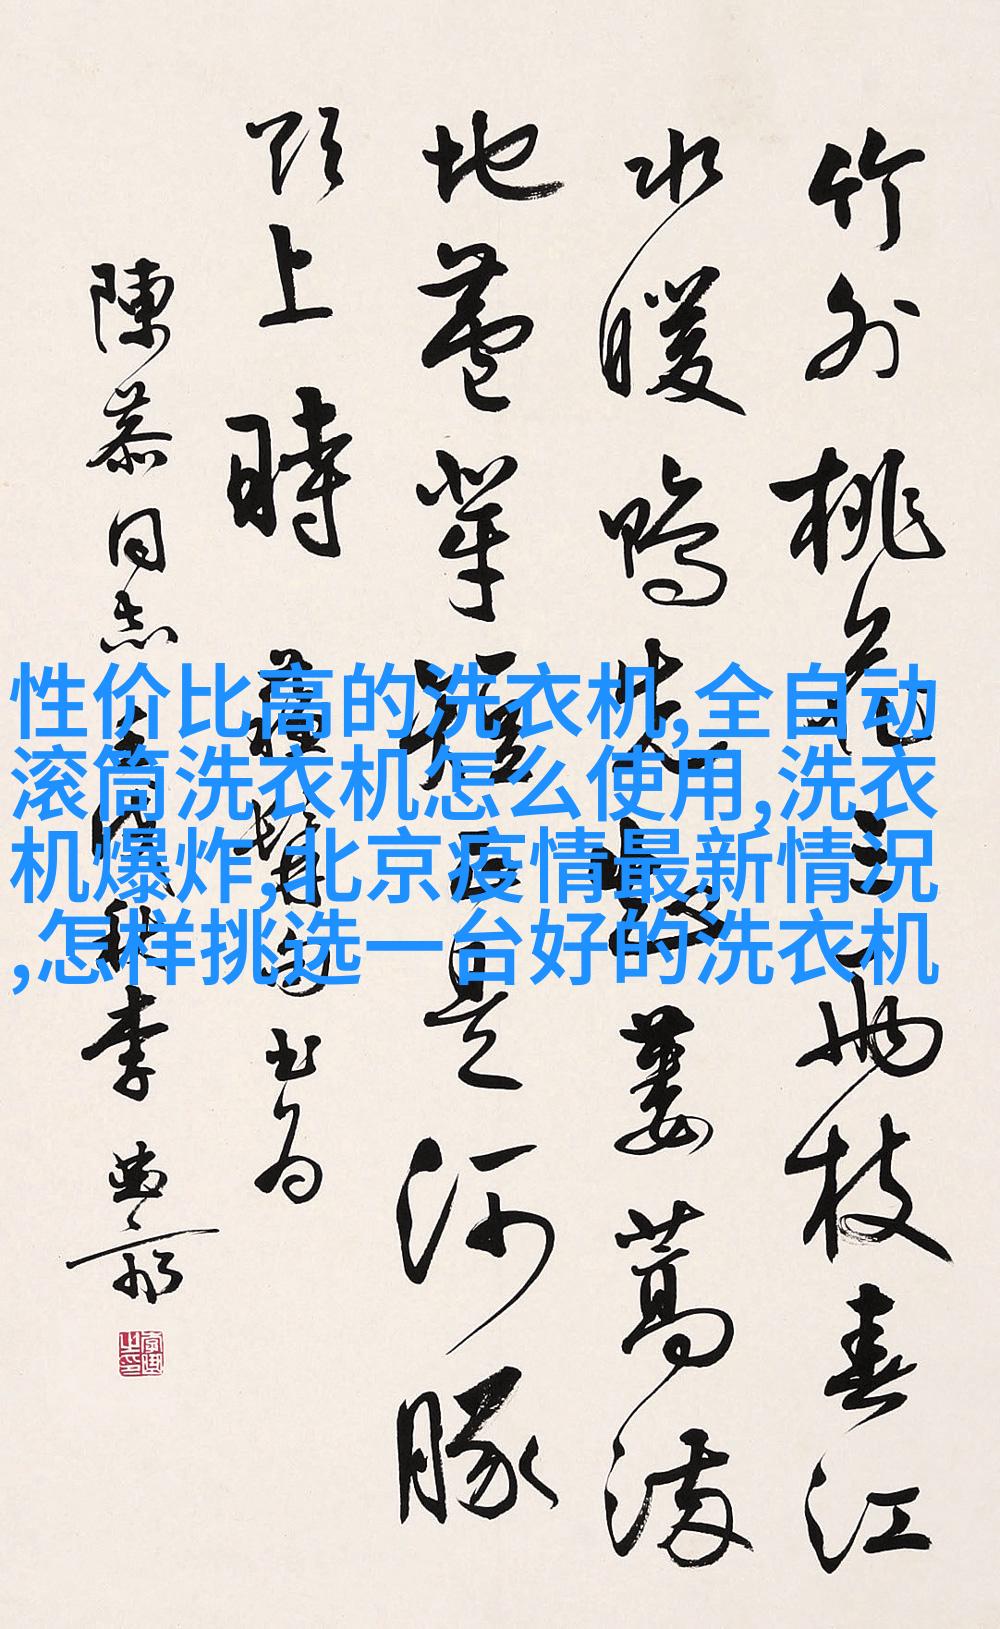 竹外桃花三兩枝春江
水暖鴨先知蔞蒿滿
地蘆芽短正是河豚
欲上時 蘇髯 書為
陳 同志 秋李
性价比高的洗衣机,全自动
滚筒洗衣机怎么使用,洗衣
机爆炸,北京疫情最新情况
,怎样挑选一台好的洗衣机